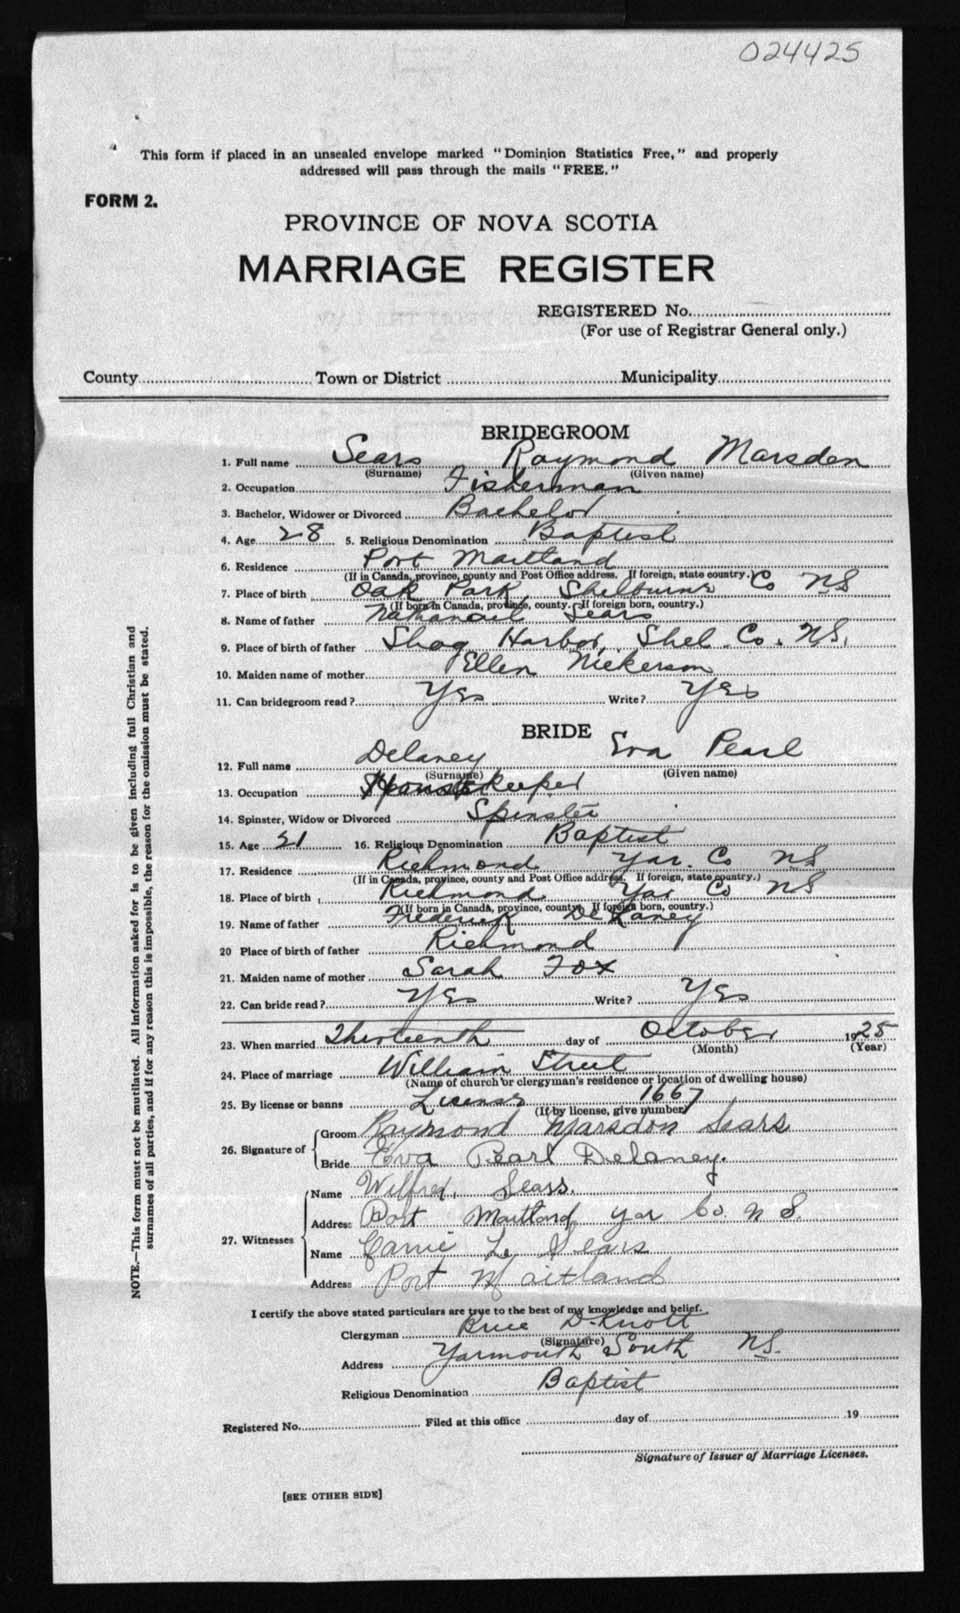 024425
This form if placed in an unsealed envelope marked "Dominion Statistics Free," and properly
addressed will pass through the mails "FREE."
FORM 2.
PROVINCE OF NOVA SCOTIA
MARRIAGE REGISTER
REGISTERED No.
(For use of Registrar General only.)
County Town or District Municipality
BRIDEGROOM
1. Full name Sears Raymond Marsden
(Surname) (Given name)
2. Occupation Fisherman
3. Bachelor, Widower or Divorced Bachelor
4. Age 28 5. Religious Denomination Baptist
6. Residence Port Maitland
(If in Canada, province, county and Post Office address. If foreign, state country.)
7. Place of birth Oak Park, Shelburne Co NS
(If born in Canada, province, county. If foreign born, country.)
8. Name of father Sears
9. Place of birth of father Shag Harbor, Shel. Co. N.S.
10. Maiden name of mother Ellen Nickerson
11. Can bridegroom read? Yes Write? Yes
BRIDE
12. Full name Delaney Eva Pearl
(Surname) (Given name)
13. Occupation Housekeeper
14. Spinster, Widow or Divorced Spinster
15. Age 21 16. Religious Denomination Baptist
17. Residence Richmond Yar. Co NS
(If in Canada, province, county and Post Office address. If foreign, state country.)
18. Place of birth Richmond Yar Co NS
(If born in Canada, province, county. If foreign born, country.)
19. Name of father Frederick Delaney
20 Place of birth of father Richmond
21. Maiden name of mother Sarah Fox
22. Can bride read? Yes Write? Yes
23. When married Thirteenth day of October 1925
(Month) (Year)
24. Place of marriage William Street
(Name of church or clergyman's residence or location of dwelling house)
25. By license or banns License 1667
(If by license, give number)
26. Signature of Groom Raymond Marsdon Sears
Bride Eva Pearl Delaney.
27. Witnesses Name Sears.
Address Port Maitland, Yar Co. N S.
Name Carrie L. Sears
Address Port Maitland
I certify the above stated particulars are true to the best of my knowledge and belief.
Clergyman D. Knott
(Signature)
Address Yarmouth South NS.
Religious Denomination Baptist
Registered No. Filed at this office day of 19
Signature of Issuer of Marriage Licenses.
[SEE OTHER SIDE]
NOTE.—This form must not be mutilated. All information asked for is to be given including full Christian and
surnames of all parties, and if for any reason this is impossible, the reason for the omission must be stated.